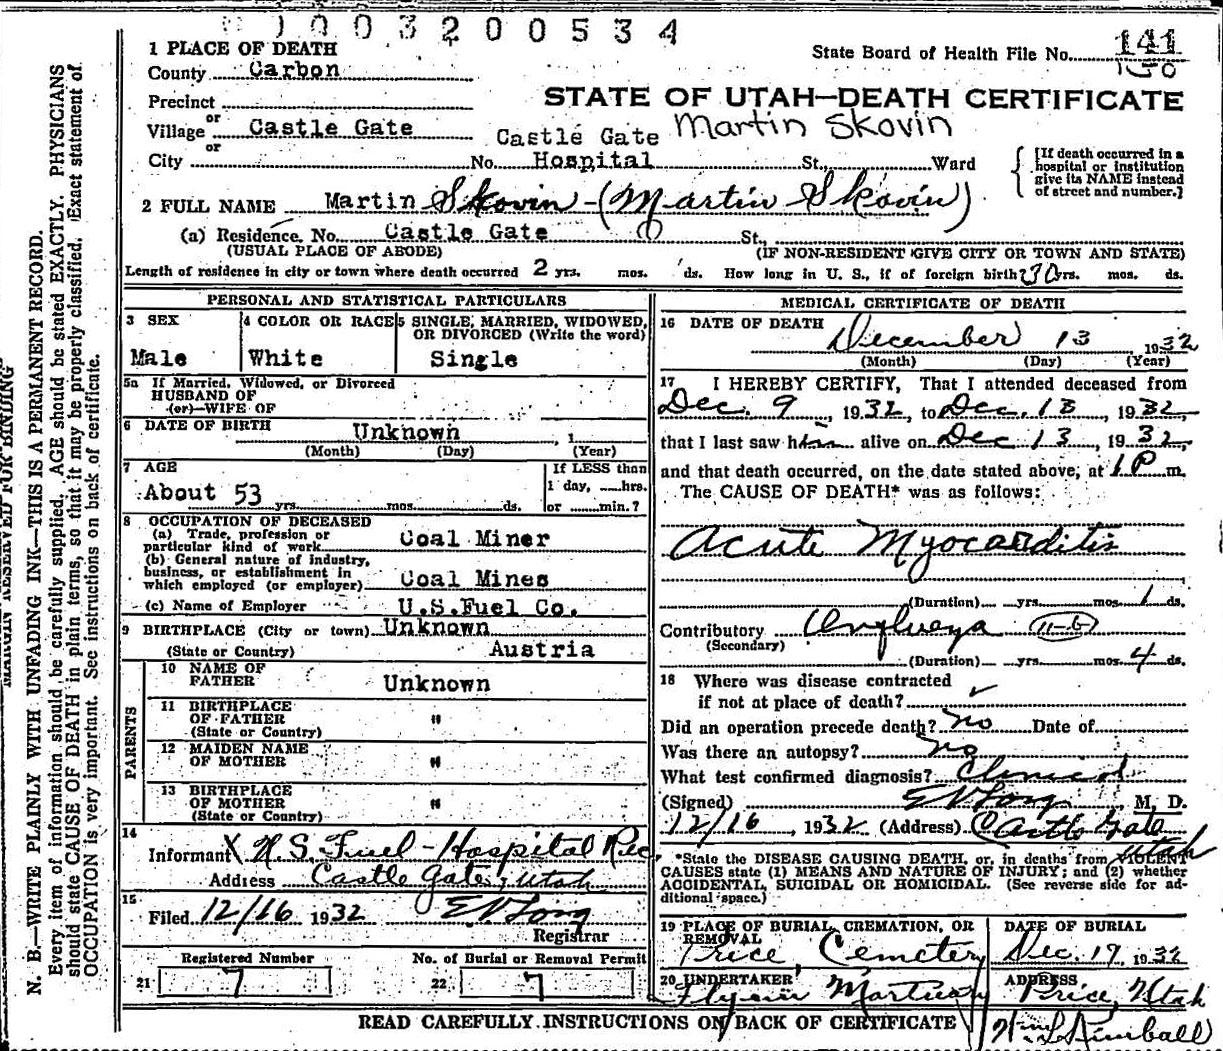 1003200534
1 PLACE OF DEATH
State Board of Health File No. 141
150
County Carbon
STATE OF UTAH—DEATH CERTIFICATE
Precinct
or
Village Castle Gate Castle Gate Martin Skovin
or
City No. Hospital St., Ward
[If death occurred in a
hospital or institution
give its NAME instead
of street and number.]
2 FULL NAME Martin Skovin - (Martin Skovin)
(a) Residence, No. Castle Gate St.,
(USUAL PLACE OF ABODE) (IF NON-RESIDENT GIVE CITY OR TOWN AND STATE)
Length of residence in city or town where death occurred 2 yrs. mos. ds. How long in U. S., if of foreign birth? 30 yrs. mos. ds.
PERSONAL AND STATISTICAL PARTICULARS
3 SEX 4 COLOR OR RACE 5 SINGLE, MARRIED, WIDOWED,
OR DIVORCED (Write the word)
Male White Single
5a If Married, Widowed, or Divorced
HUSBAND OF
(or) WIFE OF
6 DATE OF BIRTH Unknown , 1
(Month) (Day) (Year)
7 AGE If LESS than
1 day, hrs.
About 53 yrs. mos. ds. or min.?
8 OCCUPATION OF DECEASED
(a) Trade, profession or
particular kind of work Coal Miner
(b) General nature of industry,
business, or establishment in
which employed (or employer) Coal Mines
(c) Name of Employer U.S.Fuel Co.
9 BIRTHPLACE (City or town) Unknown
(State or Country) Austria
PARENTS
10 NAME OF
FATHER Unknown
11 BIRTHPLACE
OF FATHER "
(State or Country)
12 MAIDEN NAME
OF MOTHER "
13 BIRTHPLACE
OF MOTHER "
(State or Country)
14
Informant X U.S. Fuel - Hospital Rec
Address Castle Gate, Utah
15
Filed 12/16 1932 EV Long
Registrar
Registered Number No. of Burial or Removal Permit
21 7 22 7
MEDICAL CERTIFICATE OF DEATH
16 DATE OF DEATH
December 13 1932
(Month) (Day) (Year)
17 I HEREBY CERTIFY, That I attended deceased from
Dec. 9, 1932, to Dec. 13, 1932,
that I last saw him alive on Dec 13, 1932,
and that death occurred, on the date stated above, at 1 P m.
The CAUSE OF DEATH* was as follows:
Acute Myocarditis
(Duration) yrs. mos. 1 ds.
Contributory 11-b
(Secondary)
(Duration) yrs. mos. 4 ds.
18 Where was disease contracted
if not at place of death? ✓
Did an operation precede death? no Date of
Was there an autopsy? no
What test confirmed diagnosis? Clinical
(Signed) EV Long M. D.
12/16, 1932 (Address) Castle Gate
Utah
*State the DISEASE CAUSING DEATH, or, in deaths from VIOLENT
CAUSES state (1) MEANS AND NATURE OF INJURY; and (2) whether
ACCIDENTAL, SUICIDAL OR HOMICIDAL. (See reverse side for ad-
ditional space.)
19 PLACE OF BURIAL, CREMATION, OR
REMOVAL
Price, Cemetery
DATE OF BURIAL
Dec. 17, 1932
20 UNDERTAKER
Mortuary
ADDRESS
Price, Utah
Wm Kimball
READ CAREFULLY INSTRUCTIONS ON BACK OF CERTIFICATE
MARGIN RESERVED FOR BINDING
N. B.—WRITE PLAINLY WITH UNFADING INK—THIS IS A PERMANENT RECORD.
Every item of information should be carefully supplied. AGE should be stated EXACTLY. PHYSICIANS
should state CAUSE OF DEATH in plain terms, so that it may be properly classified. Exact statement of
OCCUPATION is very important. See instructions on back of certificate.